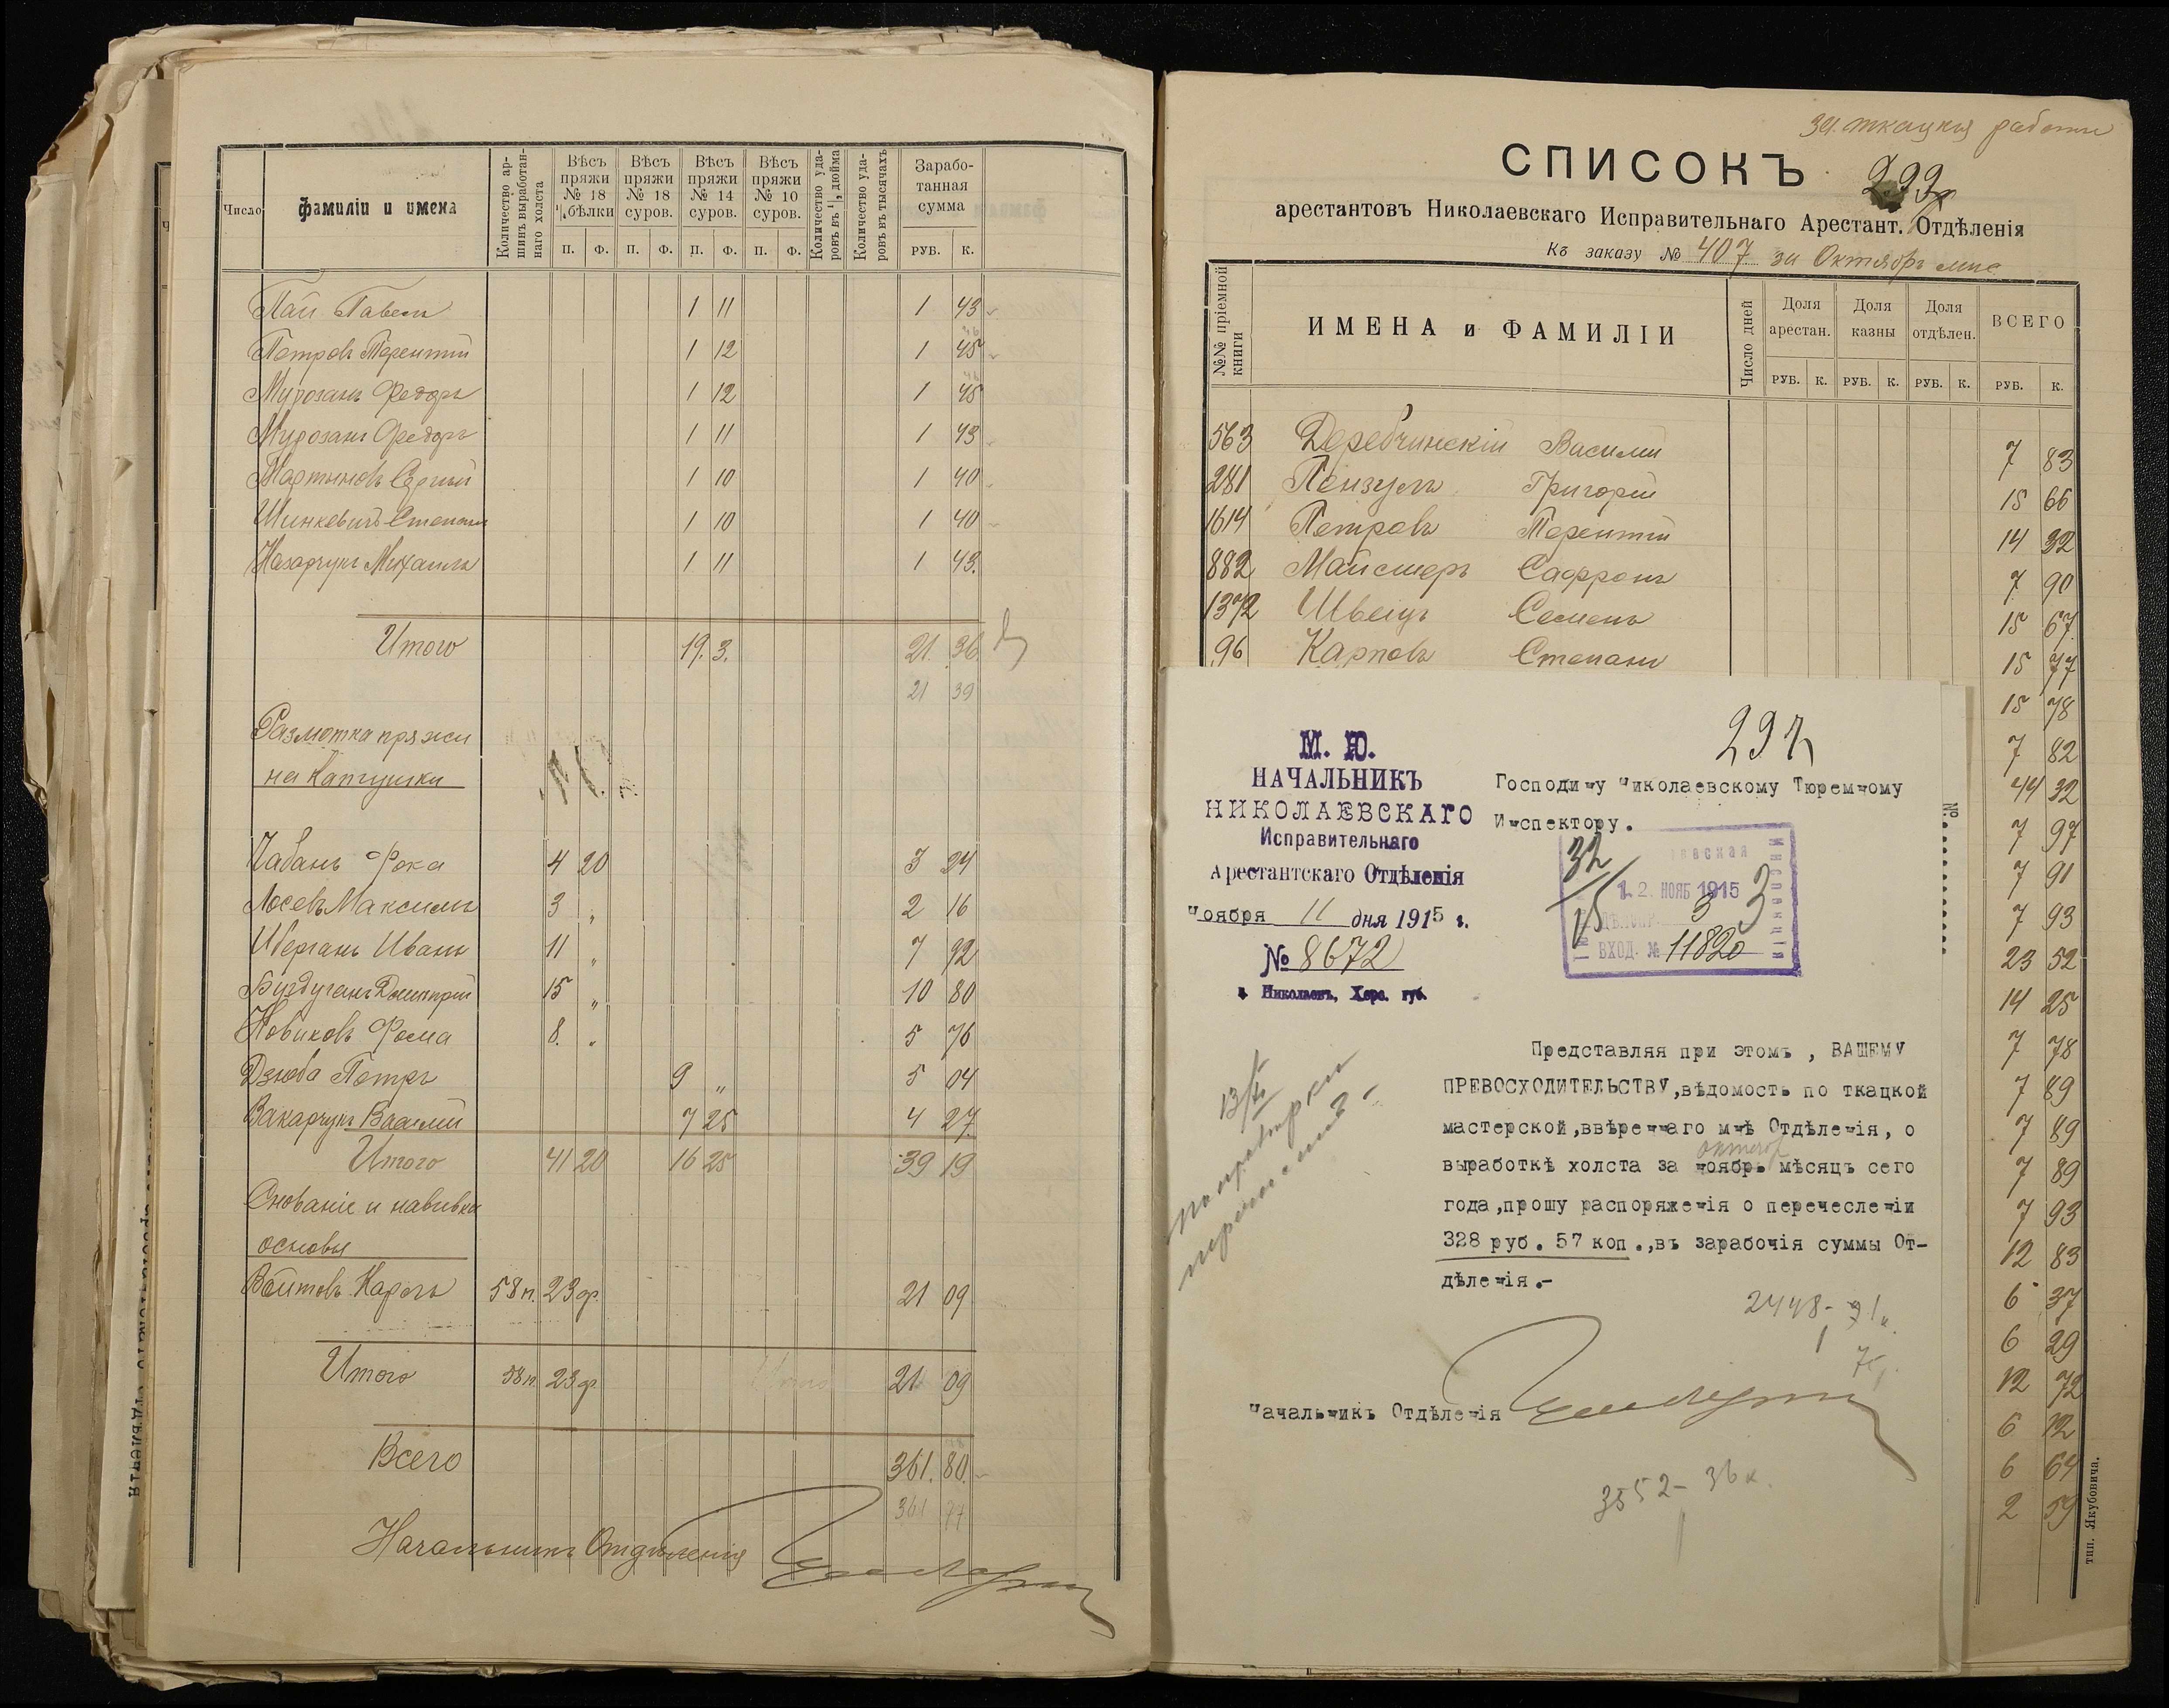 Число
фамиліи и имена
Количество ар-
шинъ выработан-
наго холста
Вѣсъ пряжи № 18 ½ бѣлки
Вѣсъ пряжи № 18 суров.
Вѣсъ пряжи № 14 суров.
Вѣсъ пряжи № 10 суров.
Количество уда-
ровъ въ ¼ дюйма
Количество уда-
ровъ въ тысячахъ
Зарабо-
танная
сумма
П. Ф. П. Ф. П. Ф. П. Ф. РУБ. К.
Пай Павелъ 1 11 1 43
Петровъ Терентій 1 12 1 45
Мурозанъ Федоръ 1 12 1 45
Мурозанъ Федоръ 1 11 1 43
Мартыновъ Сергій 1 10 1 40
Шинкевичъ Степанъ 1 10 1 40
Назарчукъ Михаилъ 1 11 1 43.
Итого 19. 3. 21. 36
21 39
Размотка пряжи
на катушки
Чабанъ Фока 4 20 3 24
Лосевъ Максимъ 3 „ 2 16
Иванъ 11 „ 7 92
Дмитрій 15 „ 10 80
Новиковъ Фома 8. „ 5 76
Дзюба Петръ 9 „ 5 04
Вакарчукъ Василій 7 25 4 27.
Итого 41 20 16 25 39 19
Снованіе и навивка
основы
Войтовъ Карпъ 58 п. 23 ф. 21 09
Итого 58 п. 23 ф. 21 09
Всего 361. 80.
361 77
Начальникъ Отдѣленія
за ткацкія работы
СПИСОКЪ
арестантовъ Николаевскаго Исправительнаго Арестант. Отдѣленія
Къ заказу № 407 за Октябрь мцъ
№№ пріемной
книги
ИМЕНА и ФАМИЛІИ
Число дней
Доля арестан.
Доля казны
Доля отдѣлен.
ВСЕГО
РУБ. К. РУБ. К. РУБ. К. РУБ. К.
563 Деребчинскій Василій 7 83
281 Пензулъ Григорій 15 66
1614 Петровъ Терентій 14 32
882 Майстеръ Сафронъ 7 90
1372 Швецъ Семенъ 15 67
96 Карповъ Степанъ 15 77
15 78
7 82
44 32
7 97
7 91
7 93
23 52
14 25
7 78
7 89
7 89
7 89
7 93
12 83
6 37
6 29
12 72
6 12
6 64
2 59
тип. Якубовича.
М. Ю.
НАЧАЛЬНИКЪ
НИКОЛАЕВСКАГО
Исправительнаго
Арестантскаго Отдѣленія
Ноября 11 дня 1915 г.
№ 8672
г. Николаевъ, Херс. губ.
Господину Николаевскому Тюремному
Инспектору.
12 НОЯБ 1915
ВХОД. № 11820
Представляя при этомъ , ВАШЕМУ
ПРЕВОСХОДИТЕЛЬСТВУ,вѣдомость по ткацкой
мастерской,ввѣреннаго мнѣ Отдѣленія, о
октябр
выработкѣ холста за ноябрь мѣсяцъ сего
года,прошу распоряженія о перечесленіи
328 руб. 57 коп.,въ зарабочія суммы От-
дѣленія.-
2448-
Начальникъ Отдѣленія
3552- 36 к.